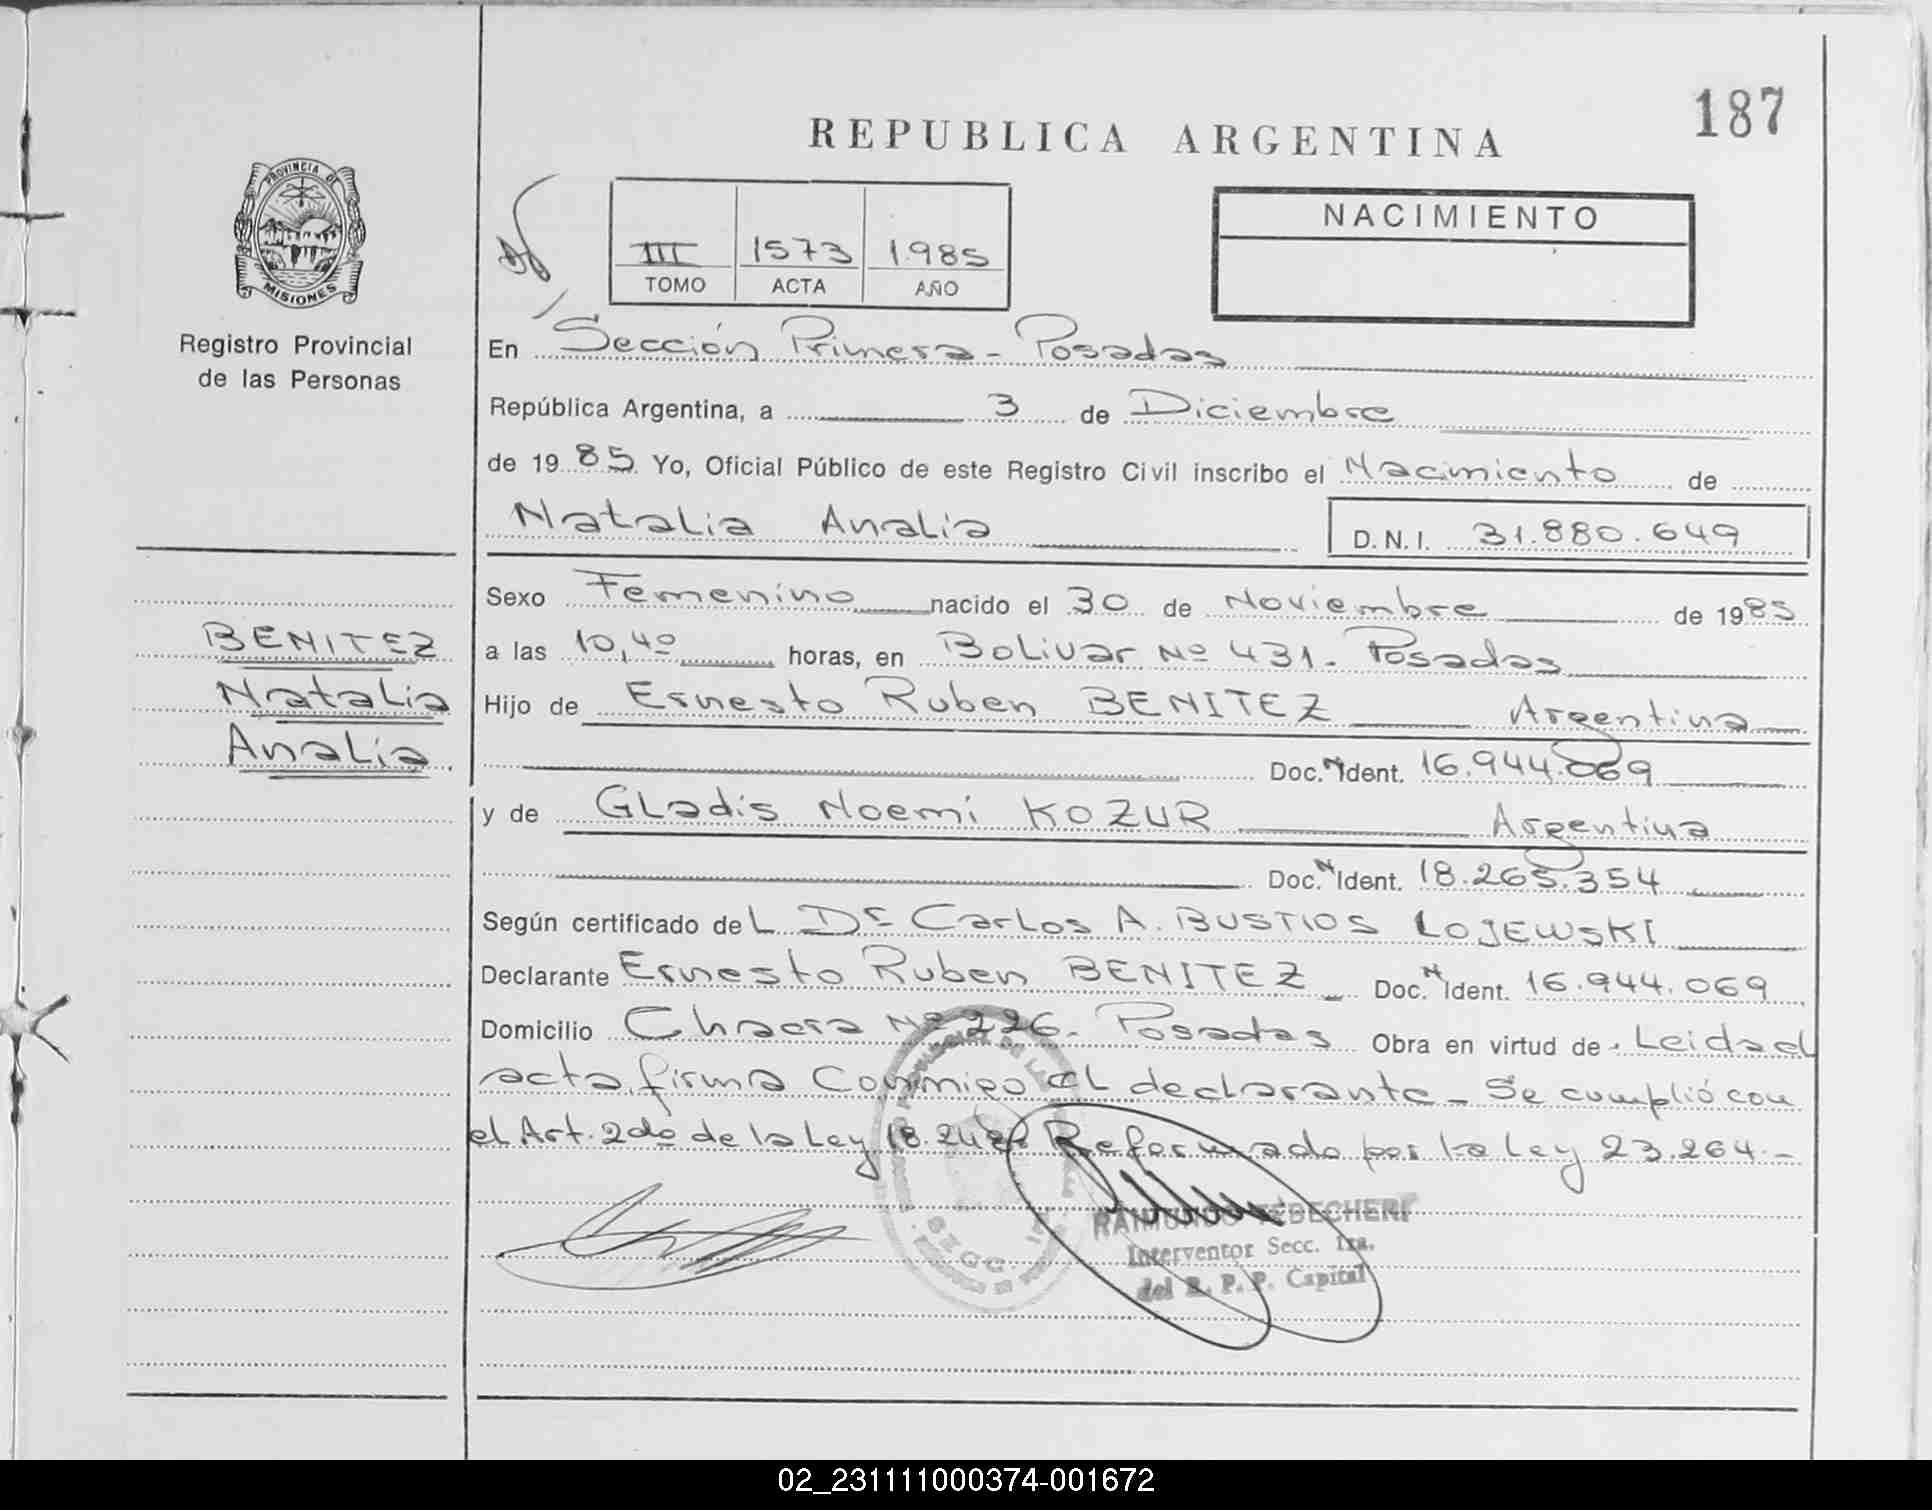 187
REPUBLICA ARGENTINA
PROVINCIA DE
MISIONES
Registro Provincial
de las Personas
III 1573 1.985
TOMO ACTA AÑO
NACIMIENTO
En Sección Primera - Posadas
República Argentina, a 3 de Diciembre
de 1985. Yo, Oficial Público de este Registro Civil inscribo el Nacimiento de
Natalia Analia D.N.I. 31.880.649
Sexo Femenino nacido el 30 de Noviembre de 1985
a las 10,40 horas, en Bolivar Nº 431. Posadas
BENITEZ
Natalia
Analía
Hijo de Ernesto Ruben BENITEZ Argentina
Doc. N Ident. 16.944.069
y de Gladis Noemí KOZUR Argentina
Doc. N Ident. 18.265.354
Según certificado del Dr Carlos A. BUSTIOS LOJEWSKI
Declarante Ernesto Ruben BENITEZ Doc. N Ident. 16.944.069
Domicilio Chacra Nº 226. Posadas Obra en virtud de. Leida el
acta, firma Conmigo el declarante - Se cumplió con
el Art. 2do de la Ley 18.248 Reformado por la Ley 23.264.-
Interventor Secc. 1ra.
del R. P. P. Capital
02_231111000374-001672